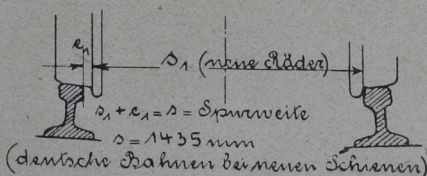 e₁
s₁ (neue Räder)
s₁ + e₁ = s = Spurweite
s = 1435 mm
(deutsche Bahnen bei neuen Schienen)